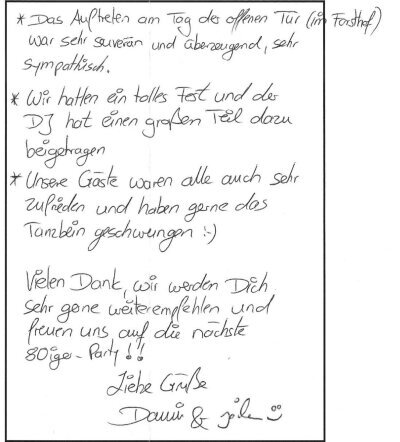 * Das Auftreten am Tag der offenen Tür (im Forsthof)
war sehr souverän und überzeugend, sehr
sympathisch.
* Wir hatten ein tolles Fest und der
DJ hat einen großen Teil dazu
beigetragen
* Unsere Gäste waren alle auch sehr
zufrieden und haben gerne das
Tanzbein geschwungen :-)
Vielen Dank, wir werden Dich
sehr gerne weiterempfehlen und
freuen uns auf die nächste
80iger-Party!!
Liebe Grüße
&